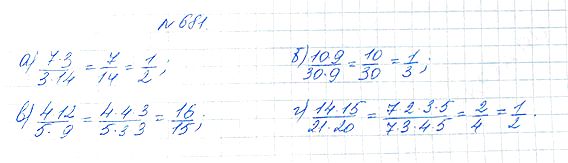 №681
а) 7·3/3·14 = 7/14 = 1/2; б) 10·9/30·9 = 10/30 = 1/3;
в) 4·12/5·9 = 4·4·3/5·3·3 = 16/15; г) 14·15/21·20 = 7·2·3·5/7·3·4·5 = 2/4 = 1/2.